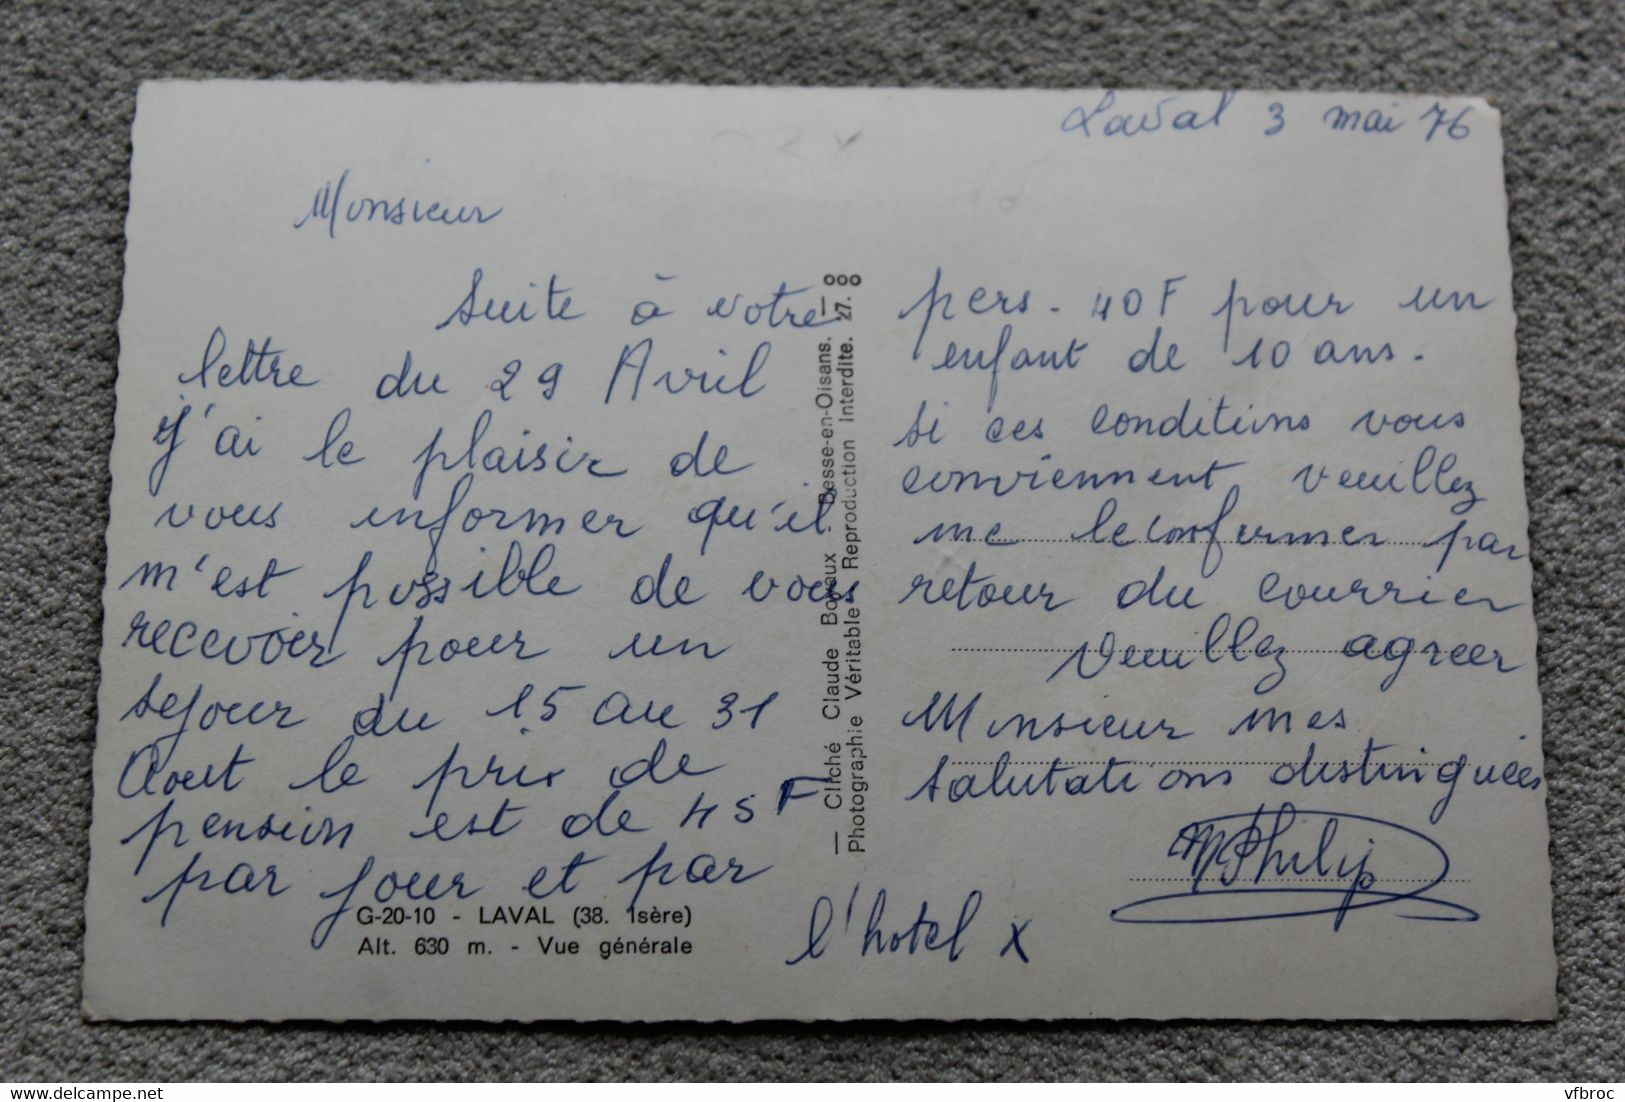 Laval 3 mai 76
Monsieur
Suite à votre
lettre du 29 Avril
j'ai le plaisir de
vous informer qu'il
m'est possible de vous
recevoir pour un
sejour du 15 au 31
Aout le prix de
pension est de 45F
par jour et par
pers. 40F pour un
enfant de 10 ans.
si ces conditions vous
conviennent veuillez
me le confirmer par
retour du courrier
Veuillez agreer
Monsieur mes
salutations distinguées
Philip
l'hotel x
— Cliché Claude Boyaux - Besse-en-Oisans. —
Photographie Véritable Reproduction Interdite. 27.
G-20-10 - LAVAL (38. Isère)
Alt. 630 m. - Vue générale
vfbroc